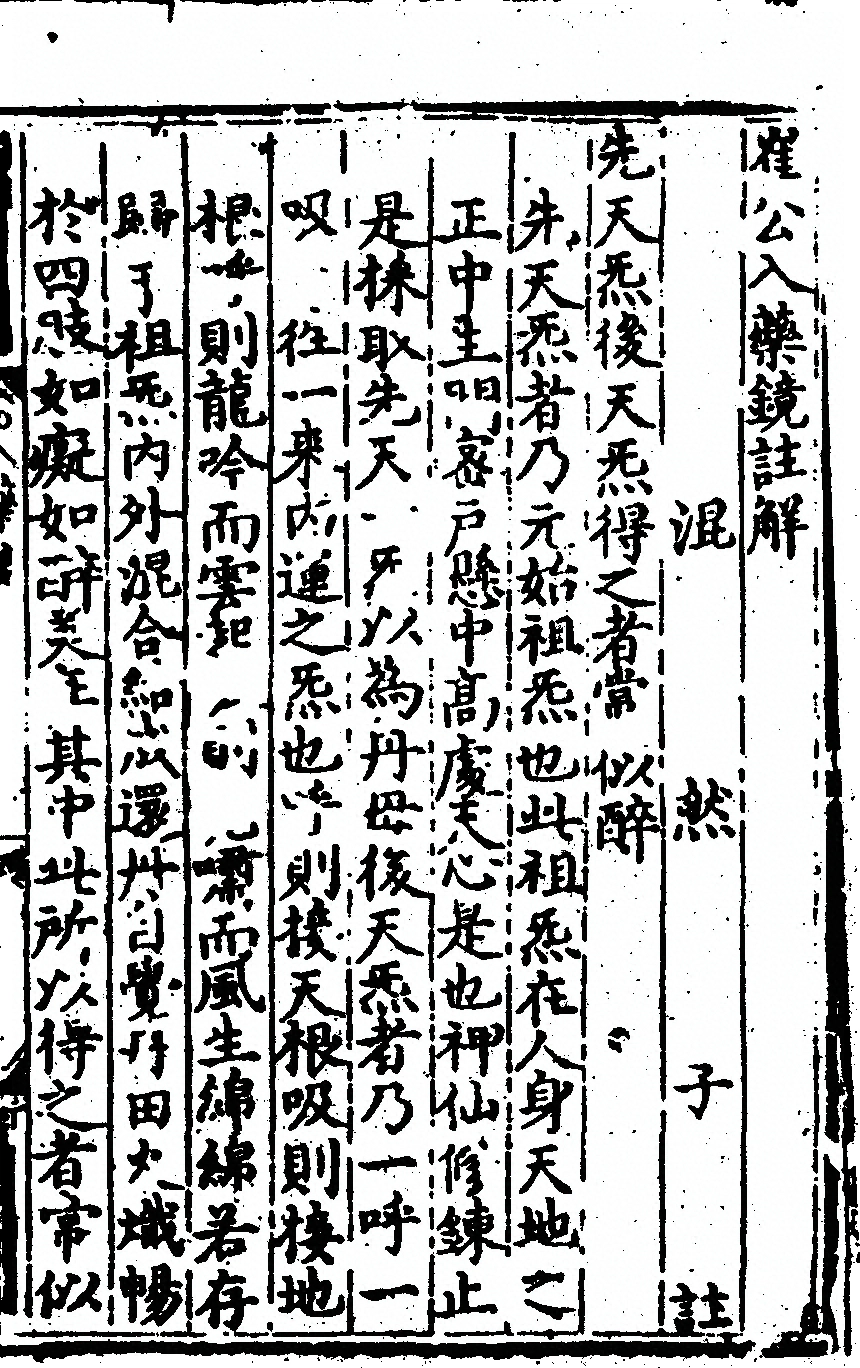 崔公入藥鏡註解
混然子註
先天炁後天炁得之者常似醉
先天炁者乃元始祖炁也此祖炁在人身天地之
正中生門密戶懸中高處天心是也神仙修鍊止
是採取先天一炁以為丹母後天炁者乃一呼一
吸一往一来内運之炁也呼則接天根吸則接地
根呼則龍吟而雲起吸則虎嘯而風生綿綿若存
歸于祖炁内外混合結成還丹自覺丹田火熾暢
於四肢如癡如醉美在其中此所以得之者常似